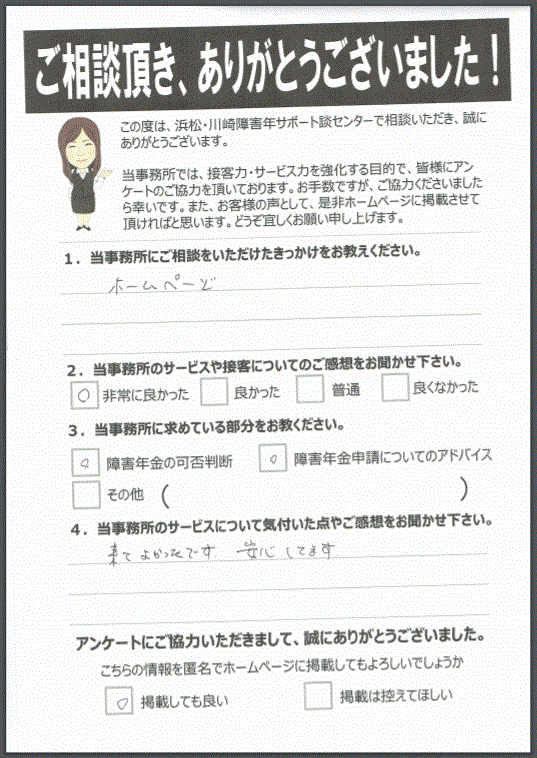 ご相談頂き、ありがとうございました！
この度は、浜松・川崎障害年サポート談センターで相談いただき、誠に
ありがとうございます。
当事務所では、接客力・サービス力を強化する目的で、皆様にアン
ケートのご協力を頂いております。お手数ですが、ご協力くださいました
ら幸いです。また、お客様の声として、是非ホームページに掲載させて
頂ければと思います。どうぞ宜しくお願い申し上げます。
１．当事務所にご相談をいただけたきっかけをお教えください。
ホームページ
２．当事務所のサービスや接客についてのご感想をお聞かせ下さい。
○ 非常に良かった 良かった 普通 良くなかった
３．当事務所に求めている部分をお教ください。
○ 障害年金の可否判断 ○ 障害年金申請についてのアドバイス
その他 （ ）
４．当事務所のサービスについて気付いた点やご感想をお聞かせ下さい。
来てよかったです。安心してます。
アンケートにご協力いただきまして、誠にありがとうございました。
こちらの情報を匿名でホームページに掲載してもよろしいでしょうか
○ 掲載しても良い 掲載は控えてほしい